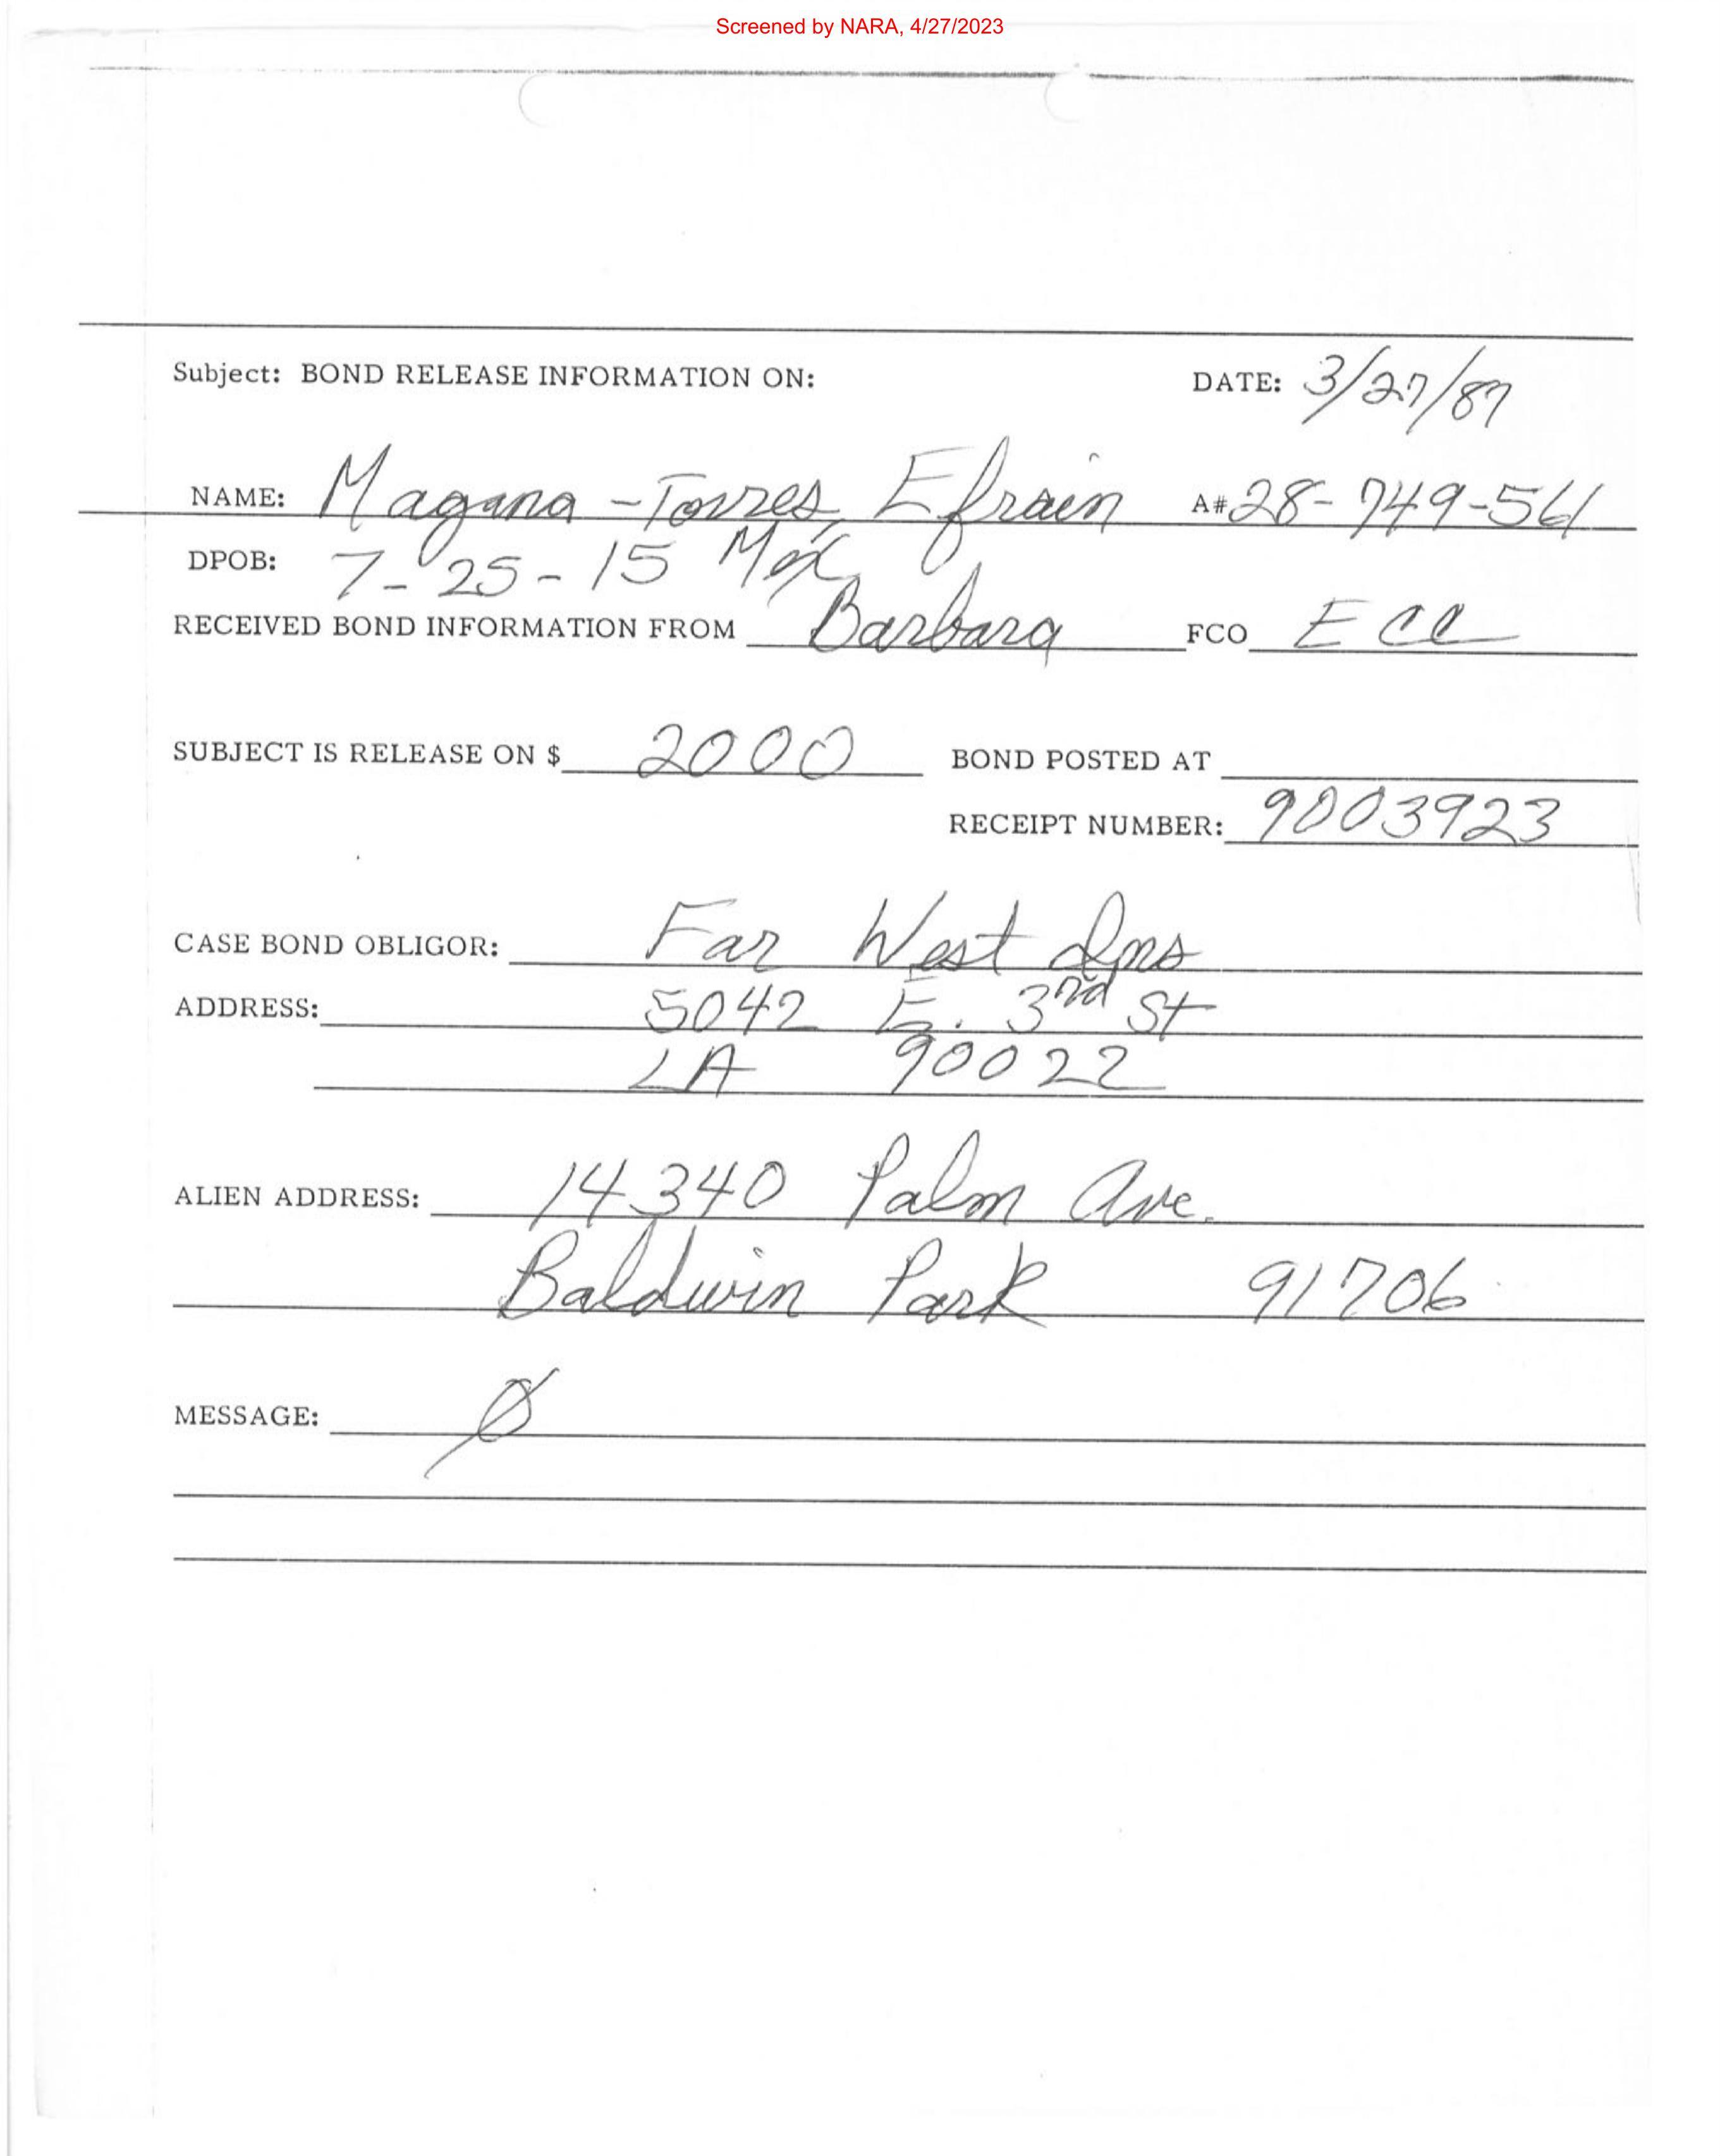 Screened by NARA, 4/27/2023
Subject: BOND RELEASE INFORMATION ON: DATE: 3/27/87
NAME: Magana-Torres, Efrain A# 28-749-561
DPOB: 7-25-15 Mex
RECEIVED BOND INFORMATION FROM Barbara FCO ECC
SUBJECT IS RELEASE ON $ 2000 BOND POSTED AT
RECEIPT NUMBER: 9003923
CASE BOND OBLIGOR: Far West Ins
ADDRESS: 5042 E. 3rd St
LA 90022
ALIEN ADDRESS: 14340 Palm Ave.
Baldwin Park 91706
MESSAGE: Ø